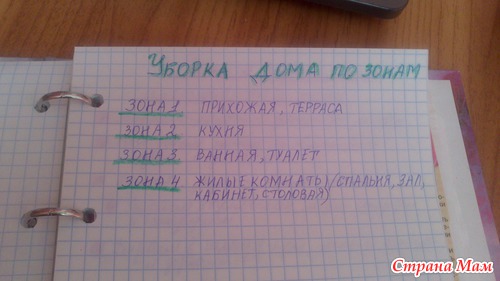 УБОРКА ДОМА ПО ЗОНАМ
ЗОНА 1 ПРИХОЖАЯ, ТЕРРАСА
ЗОНА 2 КУХНЯ
ЗОНА 3 ВАННАЯ, ТУАЛЕТ
ЗОНА 4 ЖИЛЫЕ КОМНАТЫ (СПАЛЬНЯ, ЗАЛ,
КАБИНЕТ, СТОЛОВАЯ)
Страна Мам